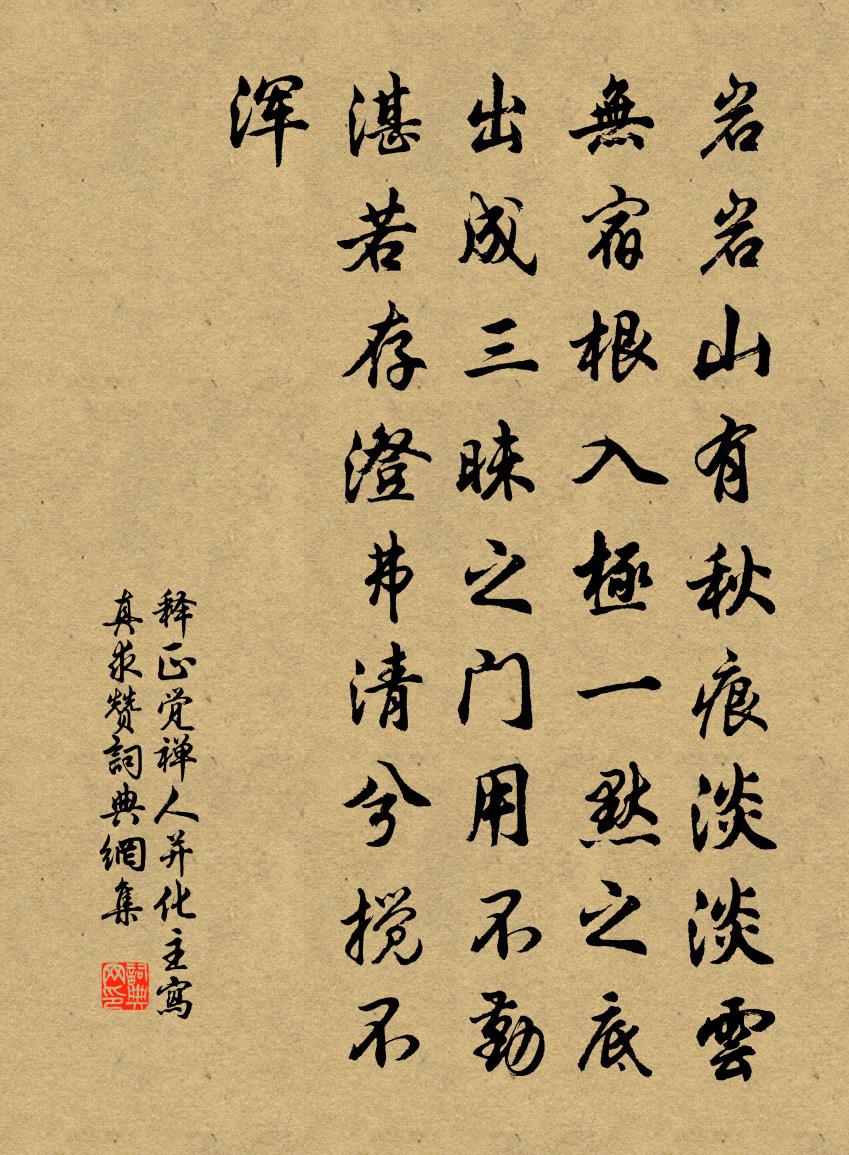 岩岩山有秋痕淡淡雲
無宿根入極一點之底
出成三昧之门用不勤
湛若存澄弗清兮撹不
浑
释正觉禅人并化主寫
真求赞詞典網集
詞典网印